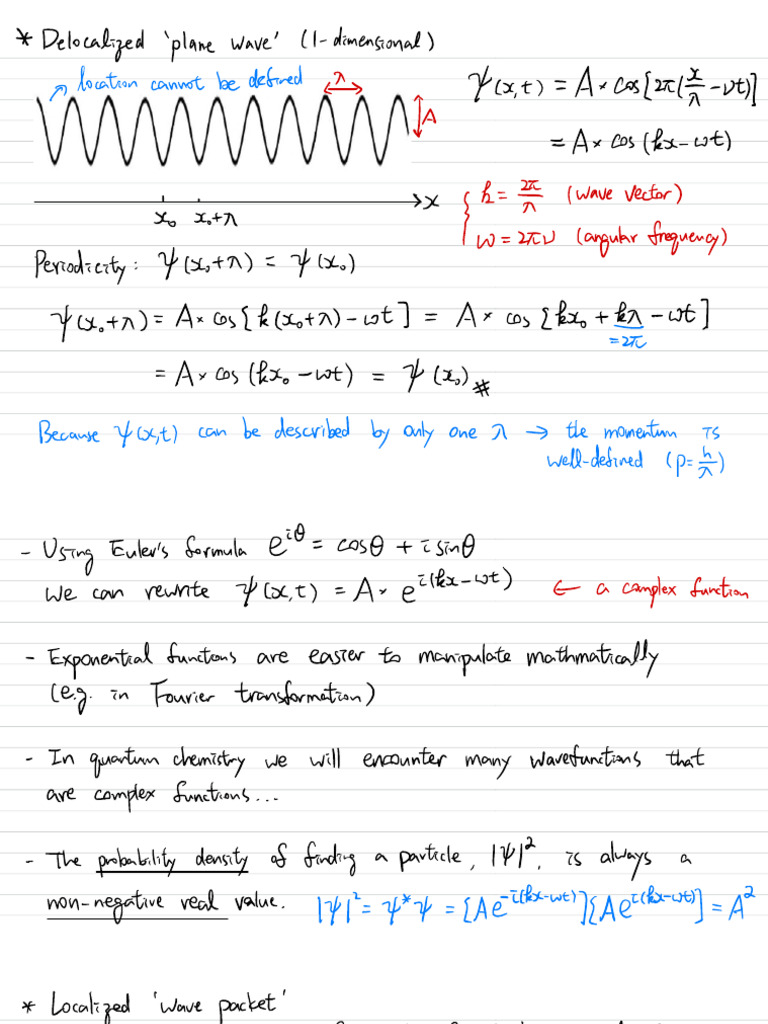 * Delocalized 'plane wave' (1-dimensional)
location cannot be defined
λ
A
ψ(x,t) = A × cos[2π(x/λ - νt)]
= A × cos(kx-ωt)
x
x₀ x₀+λ
k = 2π/λ (wave vector)
ω = 2πν (angular frequency)
Periodicity: ψ(x₀+λ) = ψ(x₀)
ψ(x₀+λ) = A × cos[k(x₀+λ)-ωt] = A × cos[kx₀ + kλ - ωt]
=2π
= A × cos(kx₀-ωt) = ψ(x₀) #
Because ψ(x,t) can be described by only one λ → the momentum is
well-defined (p=h/λ)
- Using Euler's formula e^{iθ} = cosθ + i sinθ
we can rewrite ψ(x,t) = A × e^{i(kx-ωt)} ← a complex function
- Exponential functions are easier to manipulate mathmatically
(e.g. in Fourier transformation)
- In quantum chemistry we will encounter many wavefunctions that
are complex functions...
- The probability density of finding a particle, |ψ|², is always a
non-negative real value. |ψ|² = ψ*ψ = [Ae^{-i(kx-ωt)}][Ae^{i(kx-ωt)}] = A²
* Localized 'wave packet'